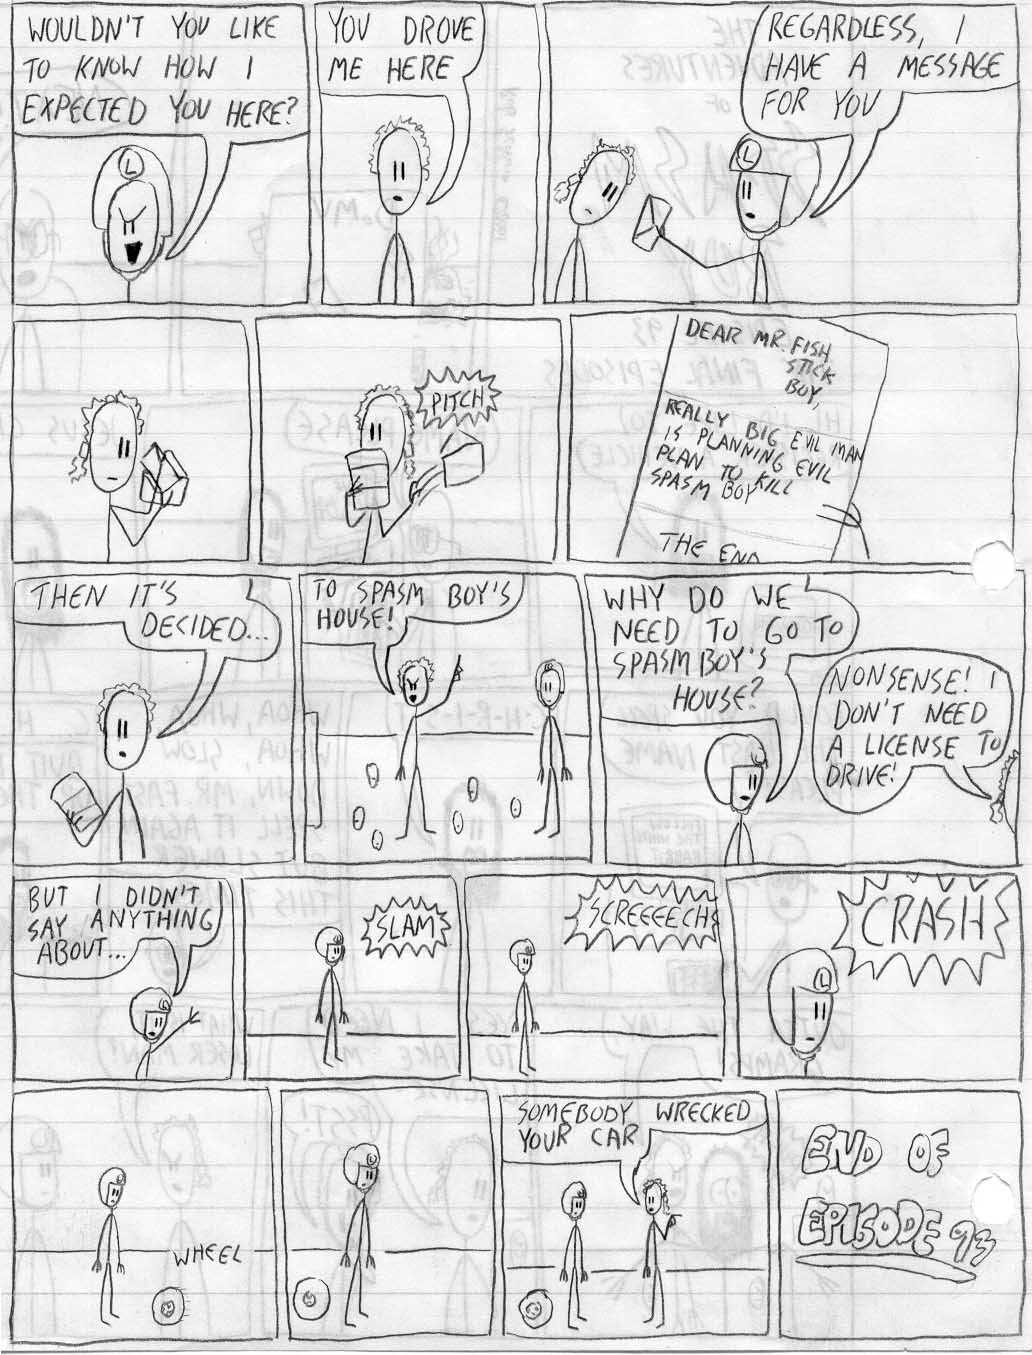 WOULDN'T YOU LIKE
TO KNOW HOW I
EXPECTED YOU HERE?
L
YOU DROVE
ME HERE
REGARDLESS, I
HAVE A MESSAGE
FOR YOU
L
PITCH
DEAR MR. FISH
STICK
BOY,
REALLY BIG EVIL MAN
IS PLANNING EVIL
PLAN TO KILL
SPASM BOY
THE END
THEN IT'S
DECIDED...
TO SPASM BOY'S
HOUSE!
WHY DO WE
NEED TO GO TO
SPASM BOY'S
HOUSE?
NONSENSE! I
DON'T NEED
A LICENSE TO
DRIVE!
BUT I DIDN'T
SAY ANYTHING
ABOUT...
SLAM
SCREEEECH
CRASH
L
WHEEL
L
SOMEBODY WRECKED
YOUR CAR
END OF
EPISODE 93